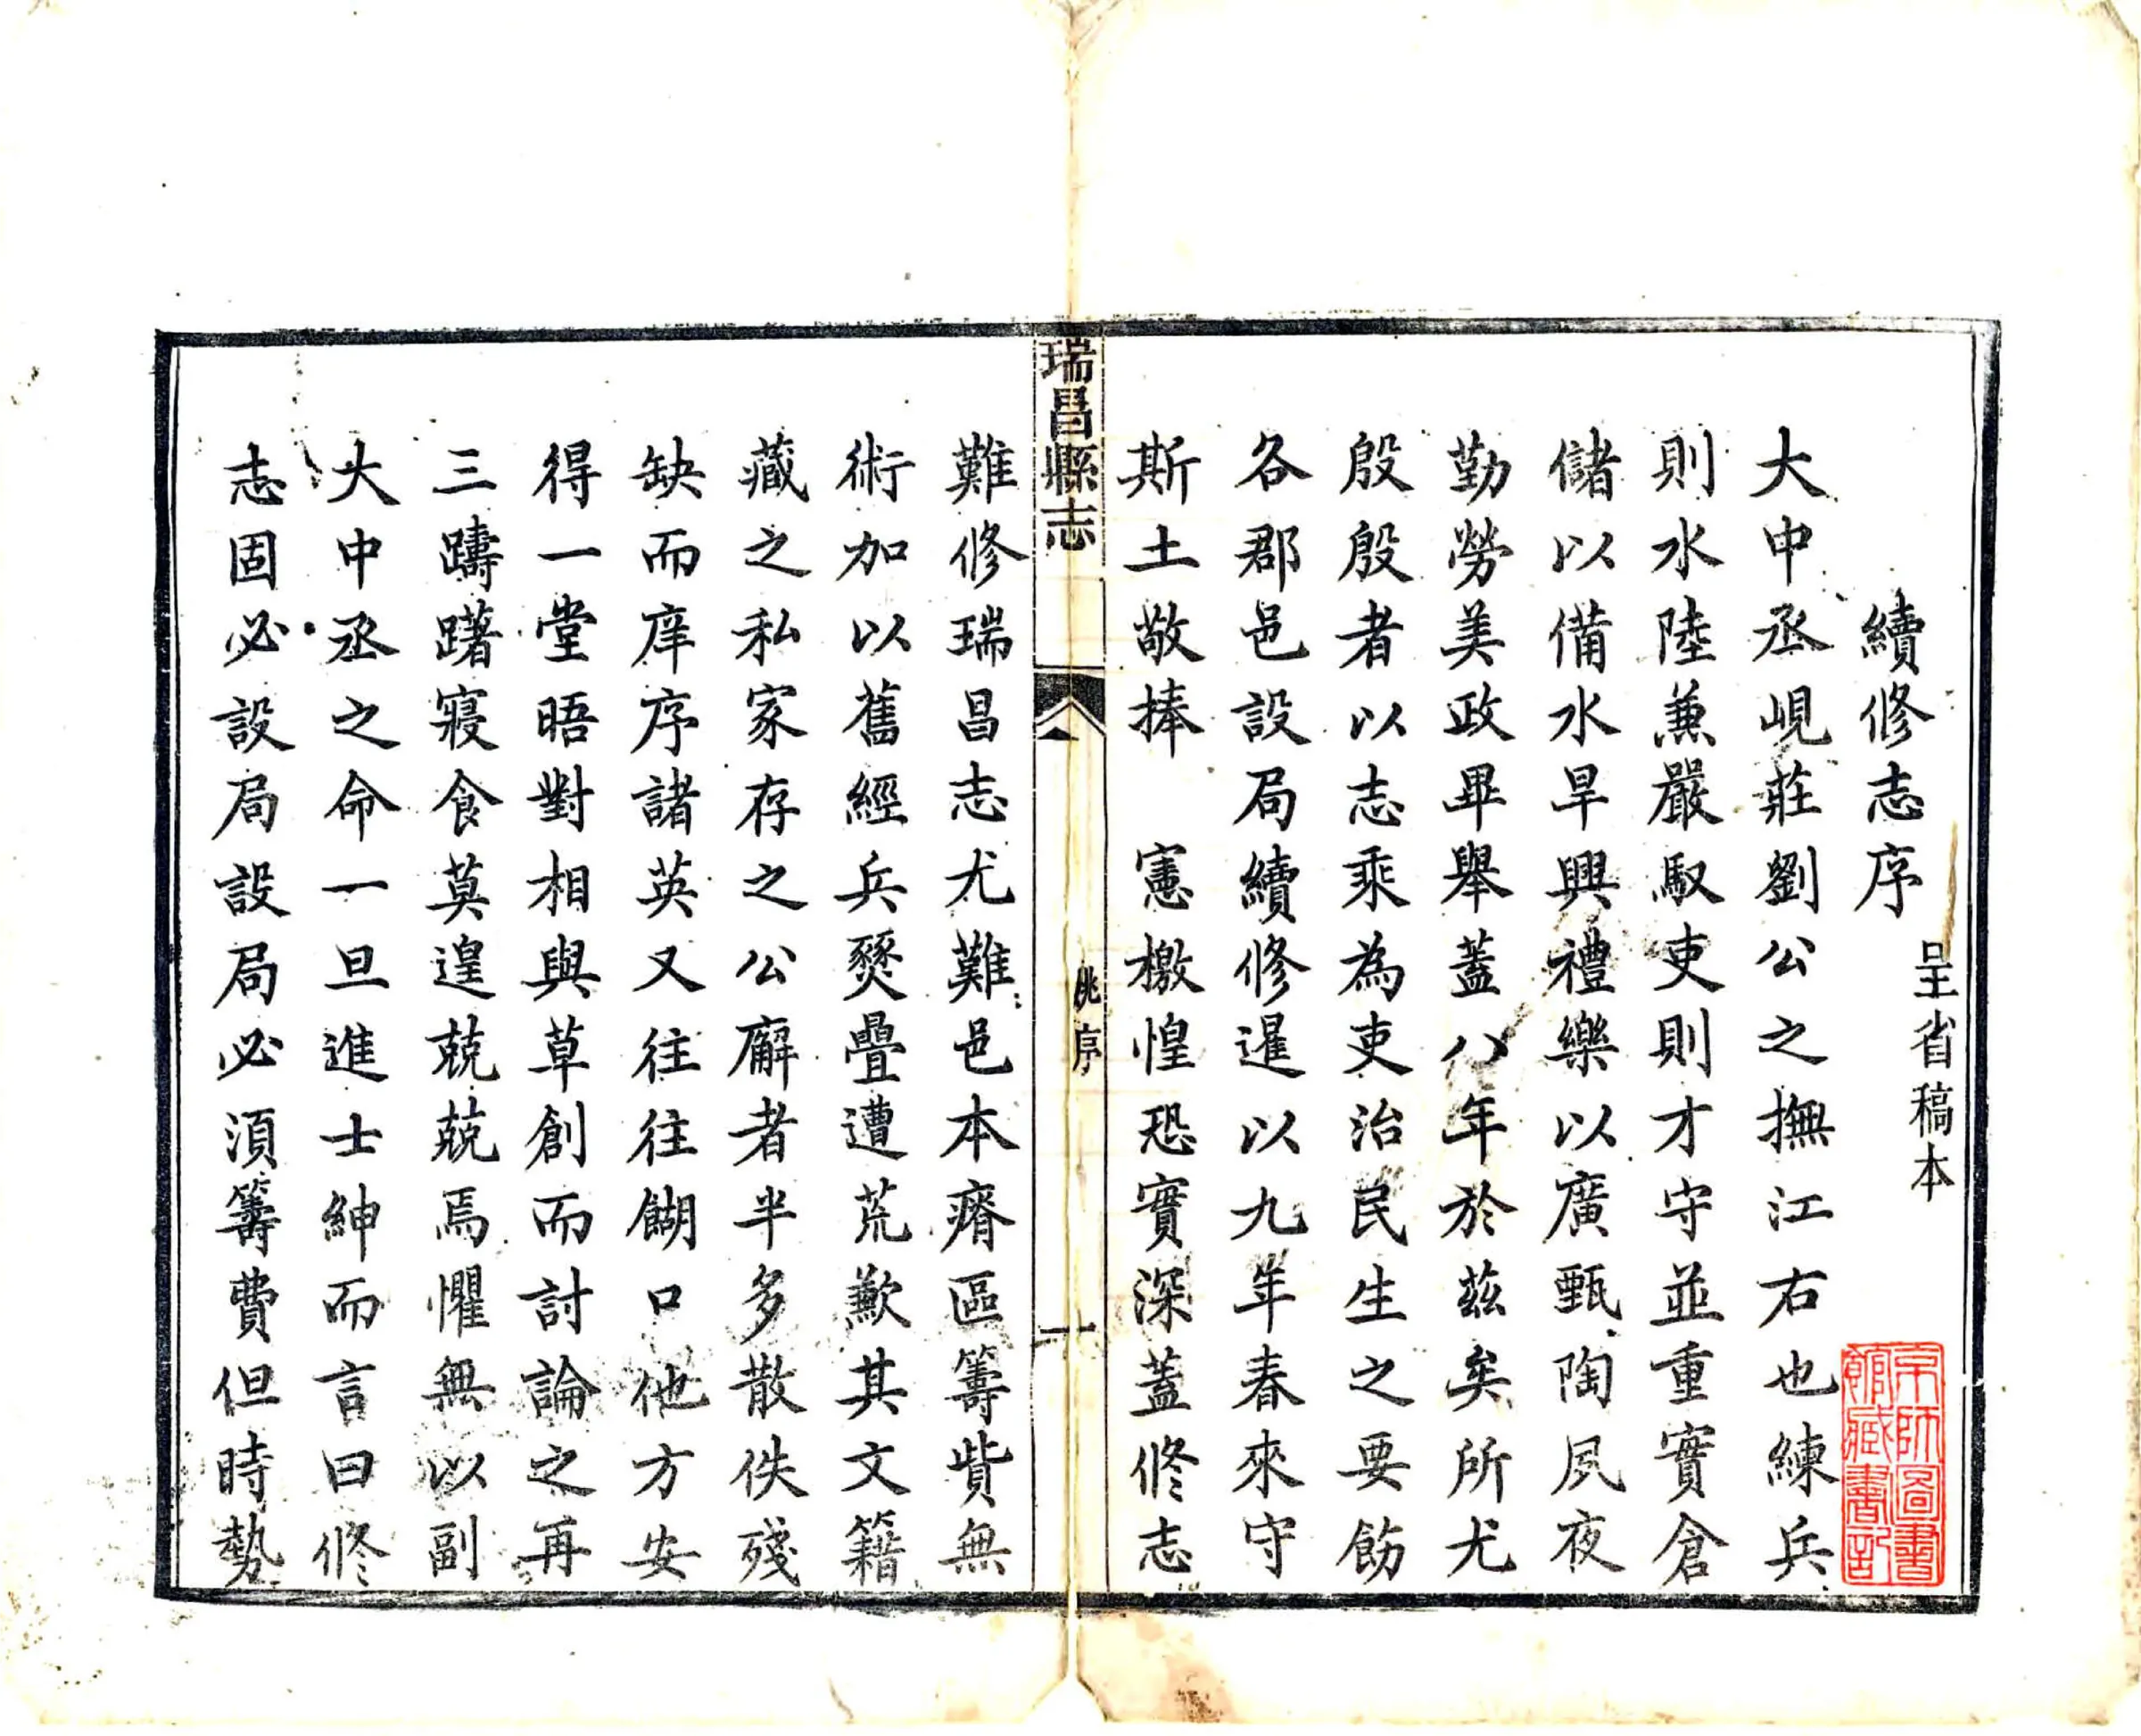 續修志序
呈省稿本
大中丞峴莊劉公之撫江右也練兵
則水陸兼嚴馭吏則才守並重實倉
儲以備水旱興禮樂以廣甄陶夙夜
勤勞美政畢舉蓋八年於茲矣所尤
殷殷者以志乘為吏治民生之要飭
各郡邑設局續修暹以九年春來守
斯土敬捧　憲檄惶恐實深蓋修志
瑞昌縣志
姚序
一
難修瑞昌志尤難邑本瘠區籌貲無
術加以舊經兵燹疊遭荒歉其文籍
藏之私家存之公廨者半多散佚殘
缺而庠序諸英又往往餬口他方安
得一堂晤對相與草創而討論之再
三躊躇寢食莫遑兢兢焉懼無以副
大中丞之命一旦進士紳而言曰修
志固必設局設局必須籌費但時勢
京師圖書
館藏書記